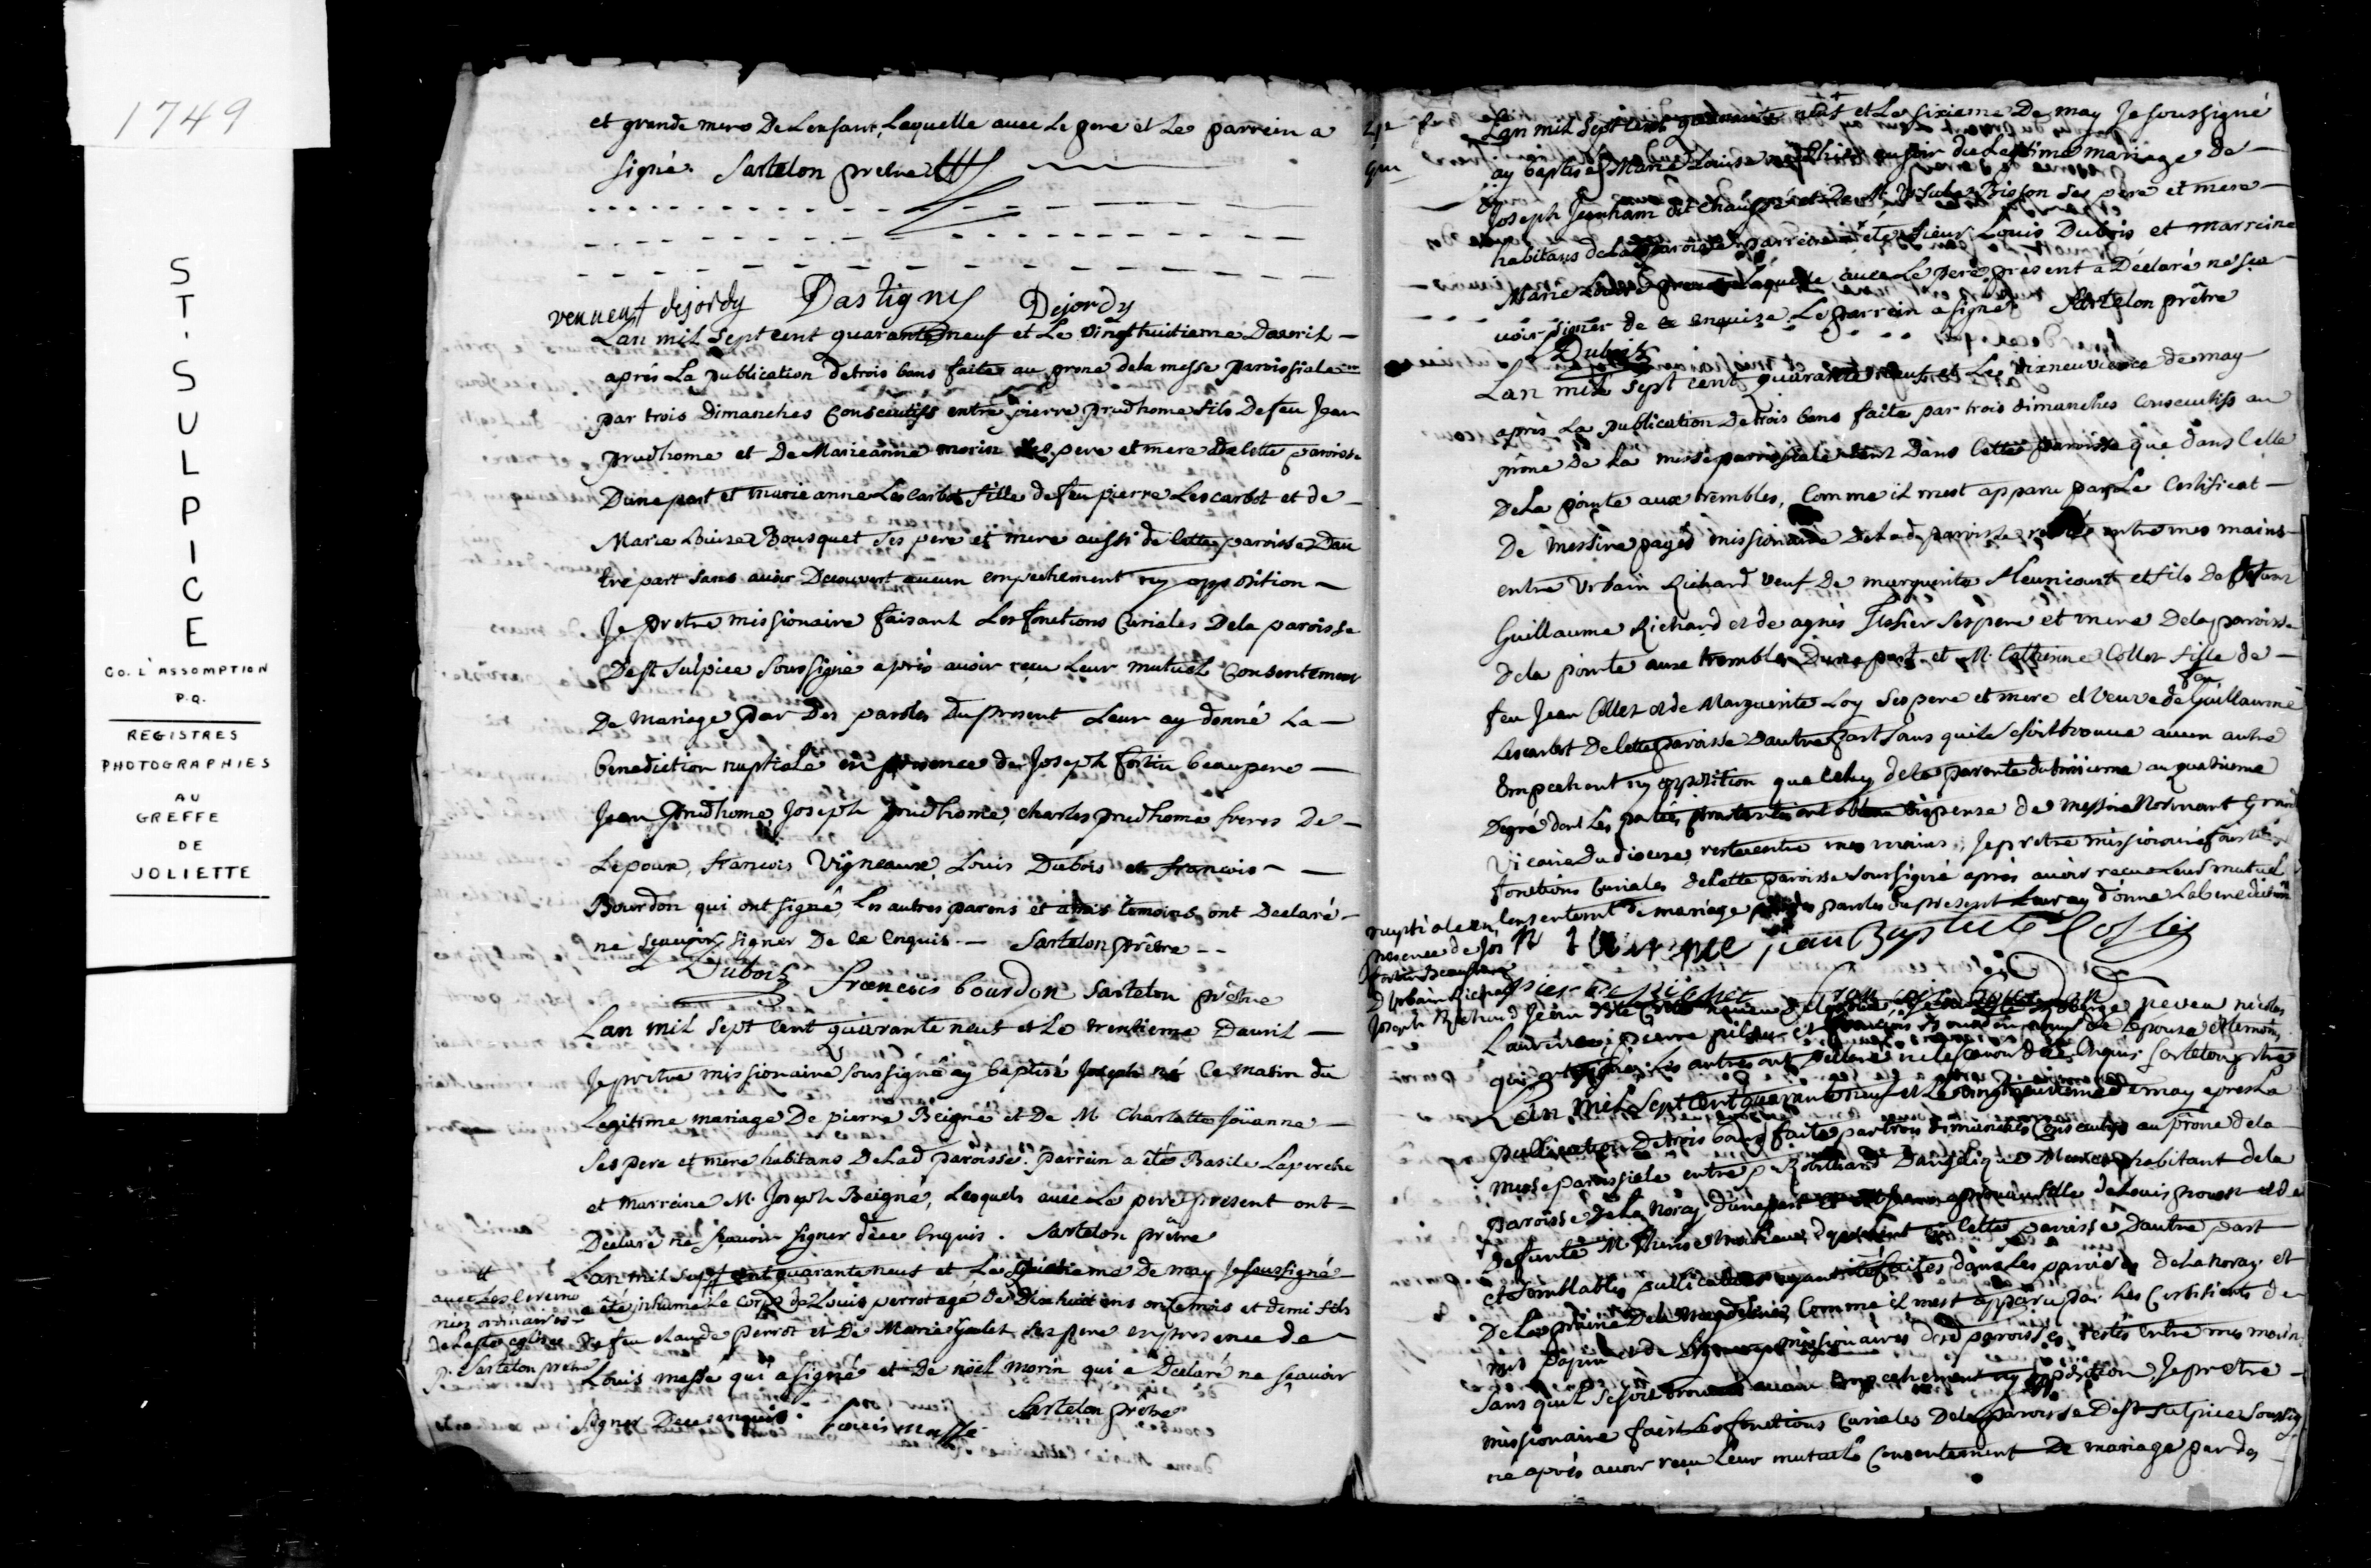 1749
ST. SULPICE
CO. L'ASSOMPTION
P.Q.
REGISTRES
PHOTOGRAPHIES
AU
GREFFE
DE
JOLIETTE
et grande mere De Lenfant, Laquelle avec Le pere et Le parrein a
signé. Sartelon pretre
venuent dejordy Dastigny Dejordy
Lan mil sept cent quarante neuf et Le vingthuitieme Davril
aprés La publication de trois bans faite au prone de la messe paroissiale
par trois Dimanches Consecutifs entre pierre prudhome fils De feu Jean
prudhome et De Marieanne morin ses pere et mere de cette paroisse
Dune part et marie anne Lescarbot fille de feu pierre Lescarbot et de
Marie Louise Bousquet ses pere et mere aussi de cette paroisse Dau
tre part sans avoir Decouvert aucun empechement ny opposition
Je pretre missionaire faisant Les fonctions Curiales De la paroisse
De st Sulpice Soussigné aprés avoir recu Leur mutuel Consentement
De mariage par Des paroles Du present Leur ay donné La
benediction nuptiale en presence de Joseph fortin beaupere
Jean prudhome, Joseph prudhome, charles prudhome freres De
Lepoux, francois Vigneaux, Louis Dubois et francois
Bourdon qui ont signé, Les autres parens et amis temoins ont Declaré
ne sçavoir signer De ce Enquis. Sartelon prêtre
Dubois François bourdon Sartelon prêtre
Lan mil sept cent quarante neuf et Le trentieme Davril
Je pretre missionaire soussigné ay baptisé Joseph né Ce matin du
Legitime mariage De pierre Beigné et De M. Charlotte Joüanne
Ses pere et mere habitans De Lad. paroisse. parrein a été Basile Laperche
et Marreine M. Joseph Beigné, Lesquels avec Le pere present ont
Declaré ne sçavoir signer de ce Enquis. Sartelon prêtre
Lan mil sept cent quarante neuf et Le De may Je soussigné
avec Les ceremo
nies ordinaires
de Cette eglise
Sartelon pretre
a été inhumé Le corps de Louis perrot agé de Dixhuit ans onze mois et demi fils
De feu claude perrot et De Marie Goulet ses pere en presence de
Louis massé qui a signé et De noël morin qui a Declaré ne sçavoir
signer De ce enquis. Louis massé Sartelon prêtre
Lan mil sept cent quarante neuf et Le sixieme De may Je soussigné
ay baptisé Marie Louise née hier au soir du Legitime mariage de
Joseph Jeanham dit Chaufour et De M. Bisson ses pere et mere
habitans de La paroisse parrein a été Sieur Louis Dubois et marreine
Marie Louise Laquelle avec Le pere present a Déclaré ne sca
voir signer de ce enquise. Le parrein a signé Sartelon prêtre
Dubois
Lan mil sept cent quarante neuf et Le dixneuvieme de may
aprés La publication De trois bans faite par trois dimanches consecutifs au
prône De La messe paroissiale tant Dans Cette paroisse que dans Celle
De La pointe aux trembles, Comme il m'est apparu par Le Certificat
De messire pagés missionaire De Lad. paroisse entre mes mains
entre Urbain Richard veuf De marguerite fleuricourt et fils de Defunt
Guillaume Richard et de agnés Tessier ses pere et mere De La paroisse
de la pointe aux trembles Dune part et M. Catherine Collet fille de
feu Jean Collet et de Marguerite Loy ses pere et mere et veuve de feu Guillaume
Lescarbot De Cette paroisse Dautre part sans quil se soit trouvé aucun autre
Empechement ny opposition que Celuy de La parenté du troisieme au quatrieme
Degré dont Les parties ont obtenu Dispense de messire Normant Grand
Vicaire du diocese restée entre mes mains, Je pretre missionaire faist Les
fonctions Curiales de Cette paroisse soussigné aprés avoir recu Leur mutuel
Consentement De mariage par des paroles du present Leur ay donné La benediction
nuptiale en
presence de Jos
fortin Beaupere
D'Urbain Richard
Joseph Richard Jean
Laurence jean Baptiste
pierre Richet François bourdon
neveu nicolas
Laurence, pierre et francois Bourdon de Lepouse et temoins
qui ont signé, Les autres ont Declaré ne Le scavoir De ce Enquis. Sartelon ptre
Lan mil sept cent quarante neuf et Le De may apres La
publication De trois bans faite par trois dimanches consecutifs au prône de la
messe paroissiale entre p. Robillard habitant de la
paroisse de La Noray dune part et fille de Louis proust et de
Defunte M. de Cette paroisse Dautre part
et semblables publications ayant été faites dans Les paroisses de La Noray et
De La prairie De La magdelaine, Comme il mest apparu par Les Certificats de
mrs papin et de missionaires desd. paroisses, restés entre mes mains
sans quil se soit trouvé aucun Empechement ny opposition, Je pretre
missionaire faist Les fonctions Curiales De La paroisse De st Sulpice soussig
né aprés avoir recu Leur mutuel Consentement De mariage par des